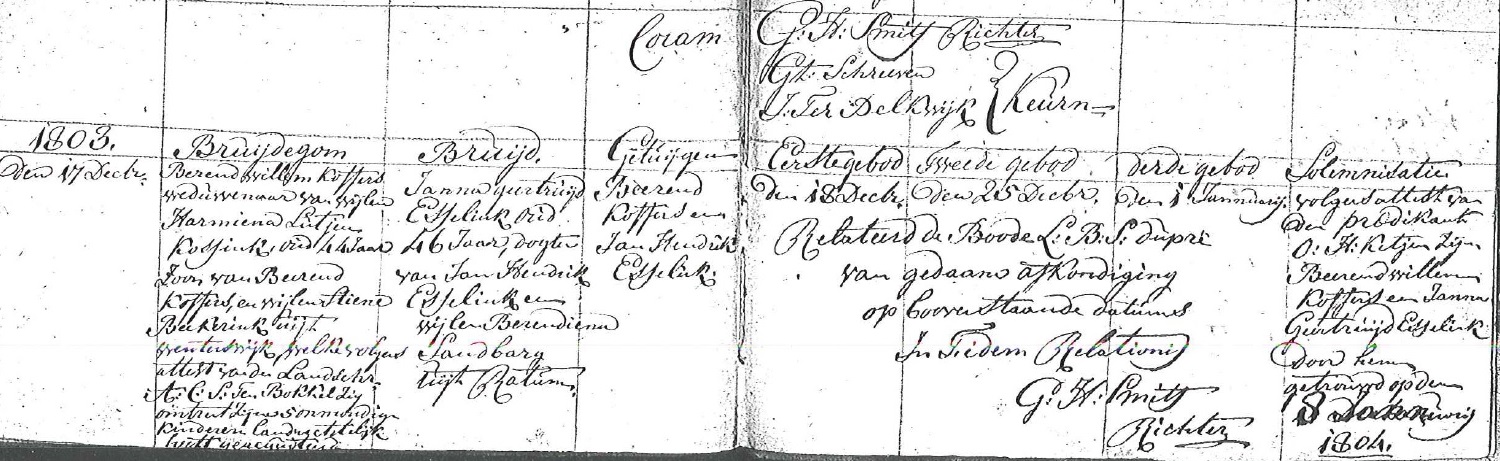 Coram
G: H: Smits Richter
Gt: Schreven
J: Ter Delkwijk } Keurn
1803.
Den 17 Decbr.
Bruijdegom
Berend willem Koffers
weduwenaar van wijlen
Harmiena Lutjen
Kossink, oud 44 Jaar
Zoon van Beerend
Koffers, en wijlen Stiene
Beekerink uijt
wenterswijk, welke volgens
attest van den Landschr:
A: C: S: Ten Bokkel Zig
omtrent Zijne onmundige
kinderen Landregtelijk
heeft
Bruijd.
Janna gertruijd
Esselink oud
46 Jaar, dogter
van Jan Hendrik
Esselink en
wijlen Berendiena
Sandbarg
uijt Ratum.
Getuijgen
Beerend
Koffers en
Jan Hendrik
Esselink.
Eerste gebod
den 18 Decbr.
Tweede gebod
Den 25 Decbr.
derde gebod
den 1 Jannuarij
Relateerd de Boode L: B: S: dupré
van gedaane afkondiging
op boovenstaande datums
In Fidem Relationis
G: H: Smits
Richter
Solemnisatie
volgens attest van
den predikant
O: H: Ketjen Zijn
Beerend willem
Koffers en Janna
Geertruijd Esselink
Door hem
getrouwd op den
8 Jannuarij
1804.